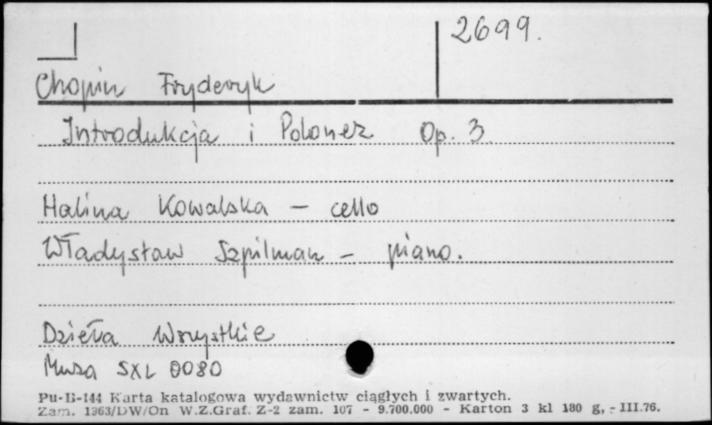 2699.
Chopin Fryderyk
Introdukcja i Polonez Op. 3
Halina Kowalska – cello
Władysław Szpilman – piano.
Dzieła Wszystkie
Muza SXL 0080
Pu-B-144 Karta katalogowa wydawnictw ciągłych i zwartych.
Zam. 1363/DW/On W.Z.Graf. Z-2 zam. 107 - 9.700.000 - Karton 3 kl 180 g, - III.76.